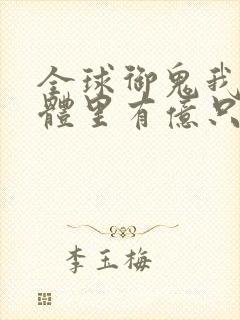 全球御鬼我
體里有億只
李玉梅